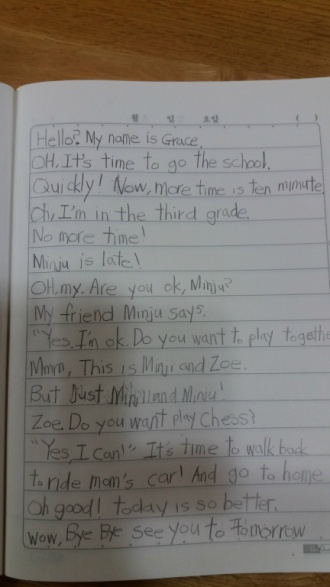 월 일 요일 ( )
Hello? My name is Grace.
OH. It's time to go the school.
Quickly! Now, more time is ten minute
Oh, I'm in the third grade.
No more time!
Minju is late!
OH, my. Are you ok, Minju?
My friend Minju says.
"Yes, I'm ok. Do you want to play togethe
Mmm, This is Minji and Zoe.
But Just and Minju!
Zoe. Do you want play Chess?
"Yes, I can!" It's time to walk back
to ride mom's car! And go to home
Oh good! today is so better.
wow, Bye Bye see you to tomorrow